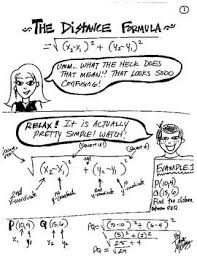 1
~ THE DISTANCE FORMULA ~
= √(x₂-x₁)² + (y₂-y₁)²
UMM... WHAT THE HECK DOES
THAT MEAN!? THAT LOOKS SOOO
CONFUSING!
RELAX! IT IS ACTUALLY
PRETTY SIMPLE! WATCH!
(square it)
(square it)
√(x₂-x₁)² + (y₂-y₁)²
2nd
x-coordinate
1st
x-coordinate
2nd
y-coordinate
1st
y-coordinate
EXAMPLE 1
P(10,4)
Q(15,6)
Find the distance
P(10,4) Q(15,6)
x₁ y₁ x₂ y₂
PQ = √(15-10)² + (6-4)²
√(5)² + (2)²
√25 + 4
PQ = √29